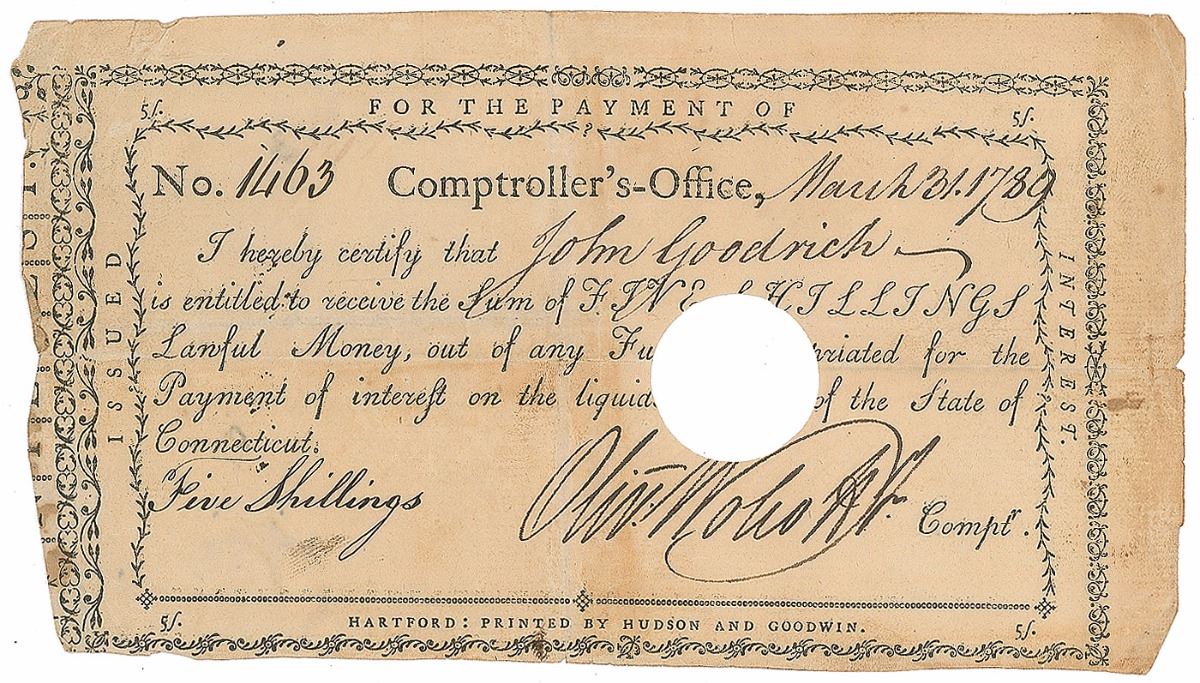 5/. FOR THE PAYMENT OF 5/.
No. 1463 Comptroller's-Office, March 31. 1789
I hereby certify that John Goodrich
is entitled to receive the Sum of FIVE SHILLINGS
Lawful Money, out of any Fu riated for the
Payment of intereſt on the liquid of the State of
Connecticut.
Five Shillings
Olivr. Wolcott Jr. Comptr.
5/. HARTFORD: PRINTED BY HUDSON AND GOODWIN. 5/.
ISSUED
INTEREST.